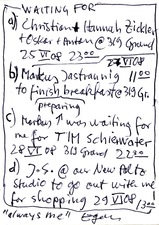 WAITING FOR
a) Christian + Hannah Zickler
+ Oskar + Anton @ 319 Grand
25 VI 08 23 00
27 VI 08
b) Markus Jastraunig 11 00
to finish breakfast @ 319 Gr.
preparing
c) Markus was waiting for
me for TIM Schiewater
28 VI 08 319 Grand 22 00
d) J.S. @ our New Paltz
studio to go out with me
for shopping 29 VI 08 13 00
"always me"